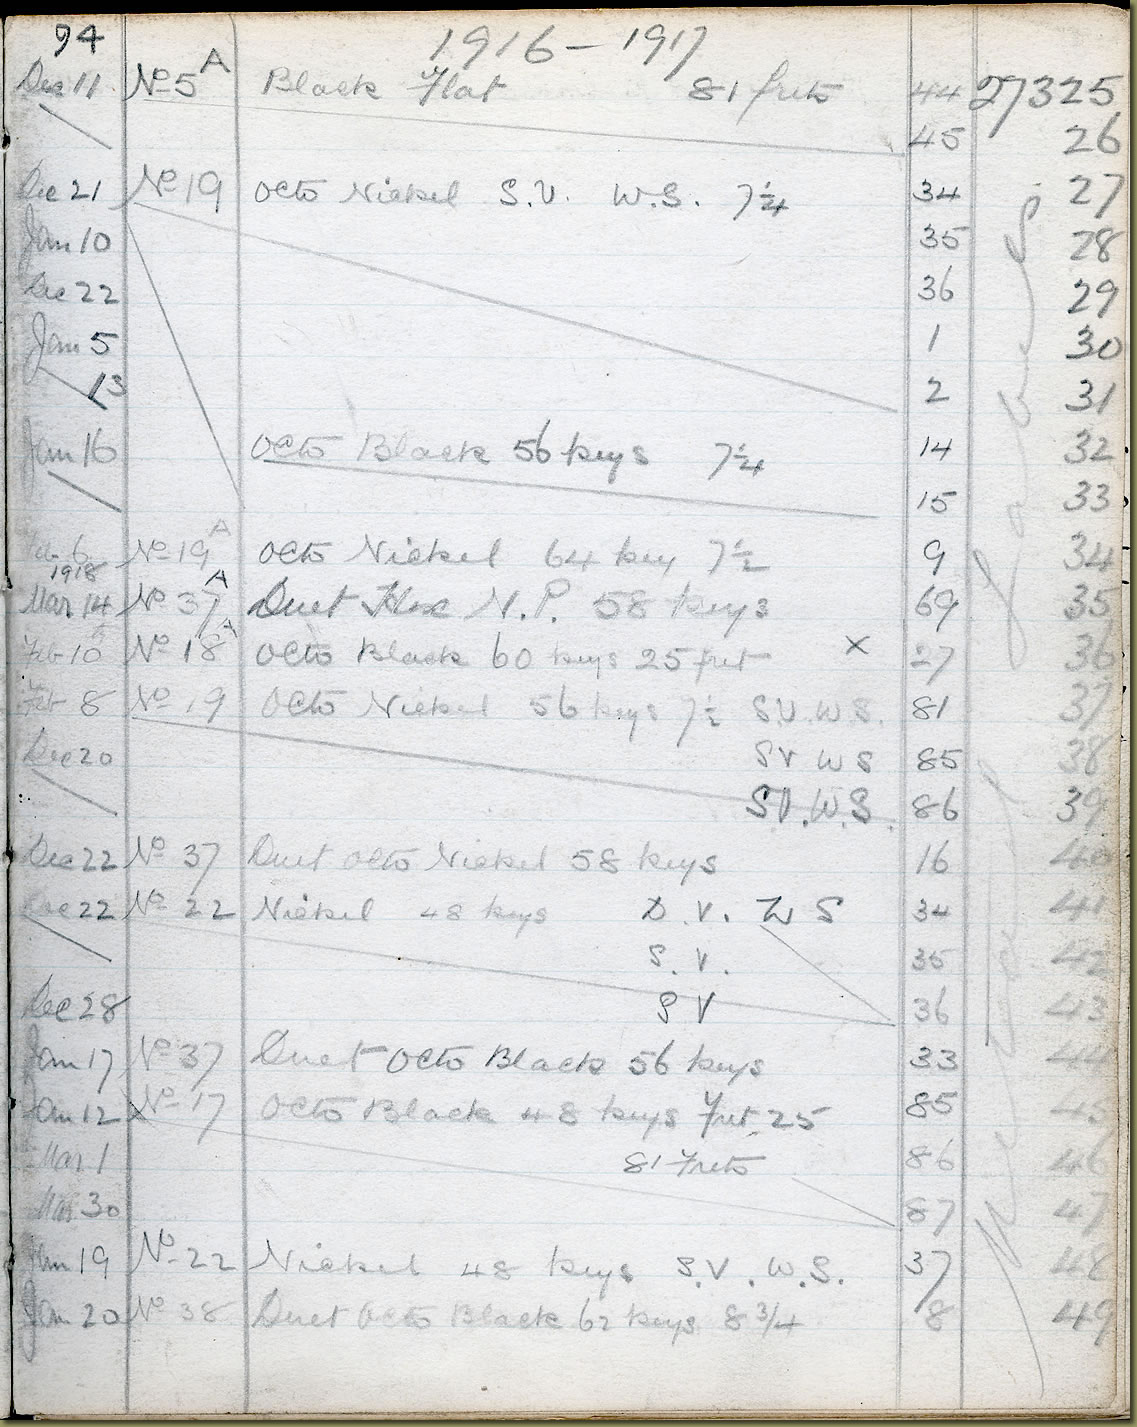 94 1916-1917
Dec 11 No 5 A Black Flat 81 frets 44 27325
45 26
Dec 21 No 19 Octo Nickel S.V. W.S. 7½ 34 27
Jan 10 35 28
Dec 22 36 29
Jan 5 1 30
13 2 31
Jan 16 Octo Black 56 keys 7½ 14 32
15 33
6 No 19 A Octo Nickel 64 key 7½ 9 34
1918
Mar 14 No 37 A Duet Hex N.P. 58 keys 69 35
Feb No 18 A Octo Black 60 keys 25 fret × 27 36
Feb 8 No 19 Octo Nickel 56 keys 7½ S.V. W.S. 81 37
Dec 20 SV WS 85 38
SV. W.S. 86 39
Dec 22 No 37 Duet Octo Nickel 58 keys 16 40
Dec 22 No 22 Nickel 48 keys D.V. W S 34 41
S.V. 35 42
Dec 28 S V 36 43
Jan 17 No 37 Duet Octo Black 56 keys 33 44
Jan 12 No 17 Octo Black 48 keys Fret 25 85 45
Mar 1 81 Frets 86 46
Mar 30 87 47
Jan 19 No 22 Nickel 48 keys S.V. W.S. 37 48
Jan 20 No 38 Duet Octo Black 62 keys 8 3/4 8 49